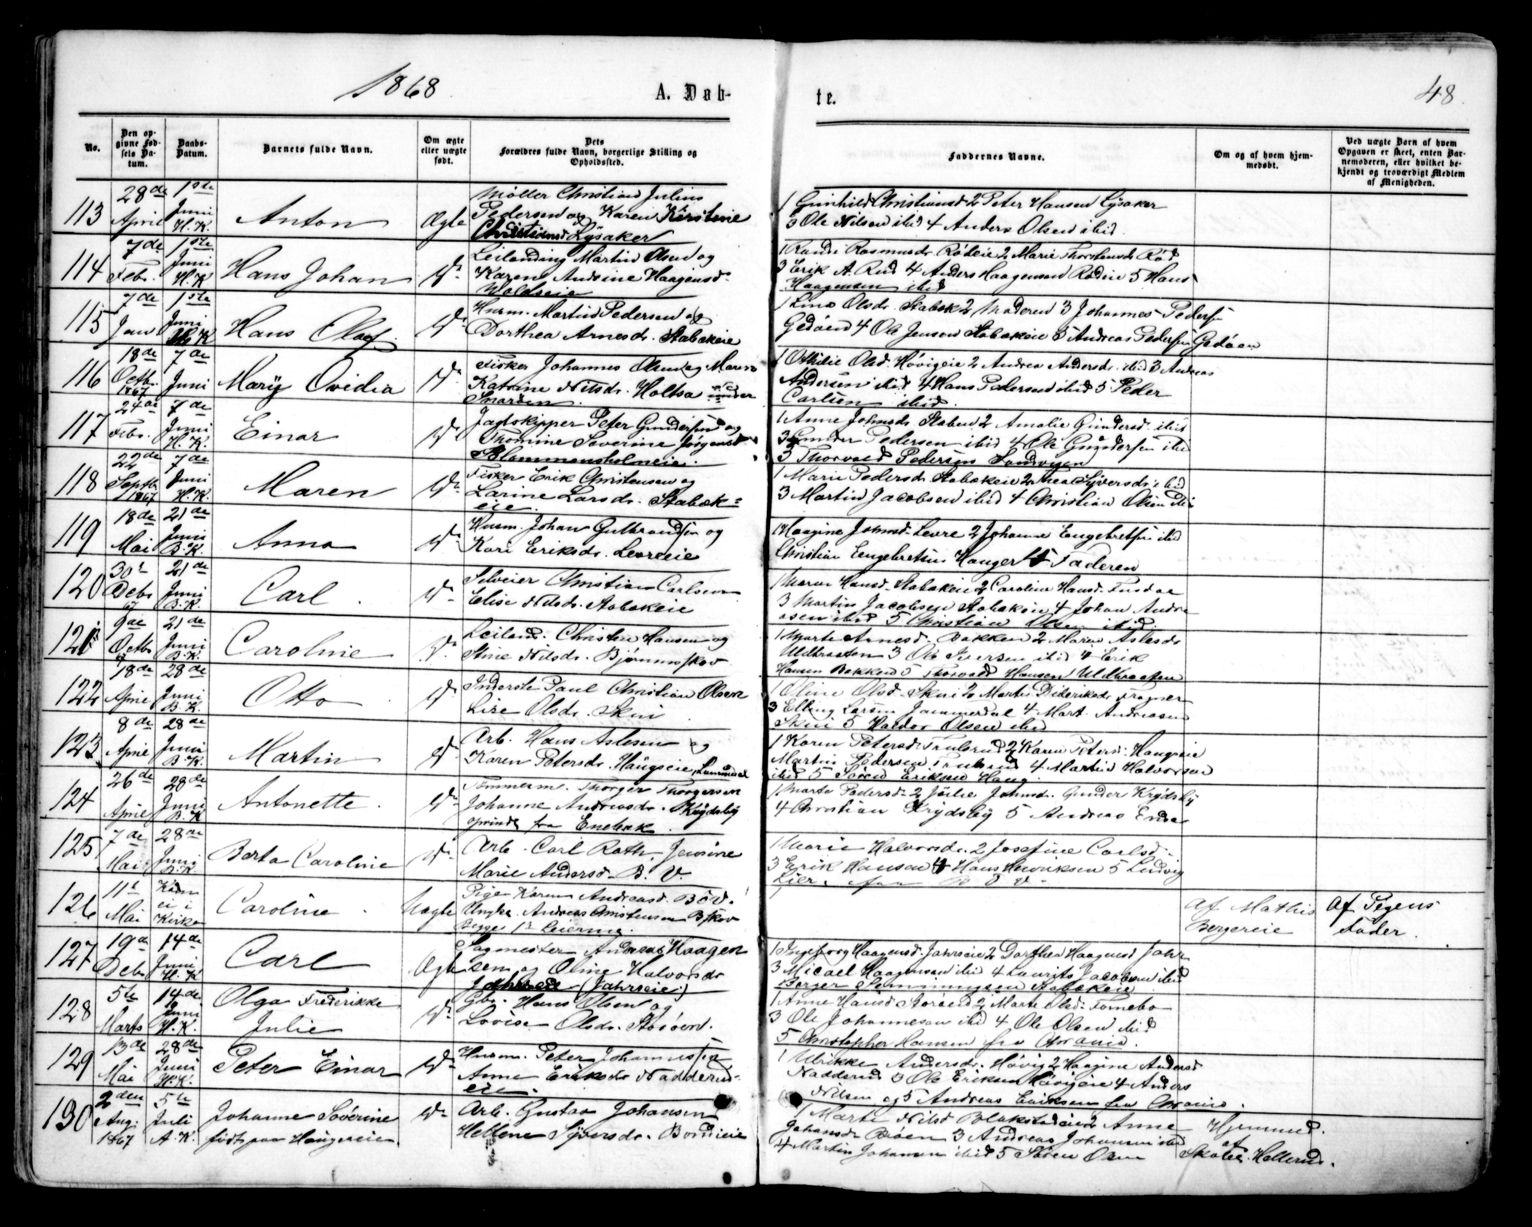 1868
A. Døb-
te.
48.
No.
Den opgivne Fødsels Datum.
Daabs-Datum.
Barnets fulde Navn.
Om ægte eller uægte født.
Dets Forældres fulde Navn, borgerlige Stilling og Opholdssted.
Faddernes Navne.
Om og af hvem hjemmedøbt.
Ved uægte Børn af hvem Opgaven er skeet, enten Barnemoderen, eller hvilket bekjendt og troværdigt Medlem af Menigheden.
113
28de April
1ste Juni H.K.
Anton
Ægte
Møller Christian Julius
Pedersen og Karen Kirstine
Christiansd Lysaker
1 Gunhild Christiansd 2 Peter Hansen Lysaker
3 Ole Nilsen ibid 4 Anders Olsen ibid.
114
7de Feb.
1ste Juni H.K.
Hans Johan
Do
Leilænding Martin Olsen og
Karen Andrine Haagensd.
3 Erik A. Rud 4 Anders Haagensen Rødeie 5 Hans
Haagensen ibid
115
7de Jan
1ste Juni H.K.
Hans Olaf.
Do
Husm. Martin Pedersen og
Dorthea Arnesd. Stabækeie
1 Lina Olsdr Stabæk 2 Moderen 3 Johannes Peders.
4 Ole Jensen Stabækeie 5 Andreas Peders.
116
18de Octbr. 1867
7de Juni
Mary Ovidia
Do
Fisker Johannes Olsen og Maren
Katrine Nilsdr. Holtsa under
Snarøen.
1 Othilie Olsd. Høvigeie 2 Andrea Andersdr. ibid 3 Andreas
Andersen ibid 4 Hans Pedersen ibid 5 Peder
Carlsen ibid.
117
24de Feb.
7de Juni H.K.
Einar
Do
Jagtskipper Peter Gundersen og
Thomine Severine Jørgensd
Blommenholmeie.
1 Anne Johnsd. 2 Amalie Gundersd. ibid
3 Gunder Pedersen ibid 4 Ole Gundersen ibid
5 Thorvald Pedersen Sandvigen
118
22de Septbr. 1867
7de Juni H.K.
Maren
Do
Fisker Erik Christensen og
Larine Larsdr. Stabæk-
eie.
1 Marie Pedersd. Stabækeie 2 Thea Syversdr. ibid
3 Martin Jacobsen ibid 4 Christian Olsen ibid
119
18de Mai
21de Juni B.K.
Anna
Do
Husm. Johan Gulbrandsen og
Kari Eriksdr. Levreeie
1 Haagine Johnsd. Levre 2 Johannes Engebretsen ibid
Christian Engebretsen Hauger 4 Faderen
120
30te Debr. 67
21de Juni B.K.
Carl.
Do
Selveier Christian Carlsen
Elise Nilsdr. Stabækeie
1 Maren Hansd. Stabækeie 2 Caroline Hansd.
3 Martin Jacobsen Stabækeie 4 Johan Andre
asen ibid 5 Christian Olsen ibid
121
9de Octb.
21de Juni B.K.
Caroline
Do
Leilænd. Christen Hansen og
Stine Nilsdr. Bjørumskov
1 Marte Arnesd. Bakken 2 Maren Aslesdr.
3 Ole Iversen ibid 4 Erik
Hansen Bakken 5 Thorvald Hansen
122
18de April
28de Juni B.K.
Otto
Do
Inderste Paul Christian Olsen
Lise Olsdr. Skui
1 Oline Olsd. Skui 2 Marte Dideriksdr.
3 4 Mart. Andreasen
Skui 5 Halvor Olsen ibid
123
8de April
28de Juni B.K.
Martin
Do
Arb. Hans Aslesen og
Karen Petersdr. Haugseie
1 Karen Petersd. 2 Karen Petersd. Haugseie
Martin Pedersen 4 Martin Halvorsen
ibid 5 Søren Eriksen Haug.
124
26de April
28de Juni B.K.
Antonette.
Do
Tømmerm. Thorger Thorgersen
Johanne Andreasdr. Krydsby
oprinde. fra Enebak.
1 Marte Pedersd. 2 Julie Johnsd. Gunder Krydsby
4 Christian Krydsby 5 Andreas
125
7de Mai
28de Juni B.K.
Berta Caroline
Do
Arb. Carl Roth, Jensine
Marie Andersd. B.V.
1 Marie Halvorsd. 2 Josefine Carlsd.
3 Erik Hansen 4 Hans Henriksen 5 Ludvig
126
11te Mai
ei i Kirken
Caroline.
Uægte
Pige Karen Andreasd. B.V.
Ungk. Andreas Christensen B.skov
Begges 1ste Leiermaal.
Af Mathis
Bergereie
Af Pigens
Fader.
127
19de Debr.
14de Juni H.K.
Carl
Ægte
Sagmester Andreas Haagen
sen og Oline Halvorsdr
(Jahrseie)
1 Ingeborg Haagensd. Jahrseie 2 Dorthea Haagensd Jahr
3 Micael Haagensen ibid 4 Laurits Jacobsen ibid
128
5te Marts
14de Juni H.K.
Olga Frederikke
Julie
Do
Gbr. Hans Olsen og
Lovise Olsdr. Storøen.
1 Anne Hansd. Storøen 2 Marte Olsd. Fornebo
3 Ole Johannesen ibid 4 Ole Olsen ibid
5 Christopher Hansen fra
129
13de Mai
28de Juni H.K.
Peter Einar
Do
Husm. Peter Johannessen
Anne Eriksdr. Nadderud-
eie.
1 Ulrikke Andersdr. Høvig 2 Haagine Andersd
Nadderud 3 Ole Eriksen Høvigeie 4 Anders
Nilsen og 5 Andreas Eriksen fra
130
2den Aug. 1867
5te Juli A.K.
Johanne Søverine
født paa Haugereie.
Do
Arb. Gustav Johansen
Hellene Syversdr.
1 Marte Nilsd. Blakstadeie 2 Anne
Johansdr. 3 Andreas Johannesen ibid
4 Martin Johansen ibid 5 Søren Olsen
Hjemmed.
af
Skolel. Hellerud.